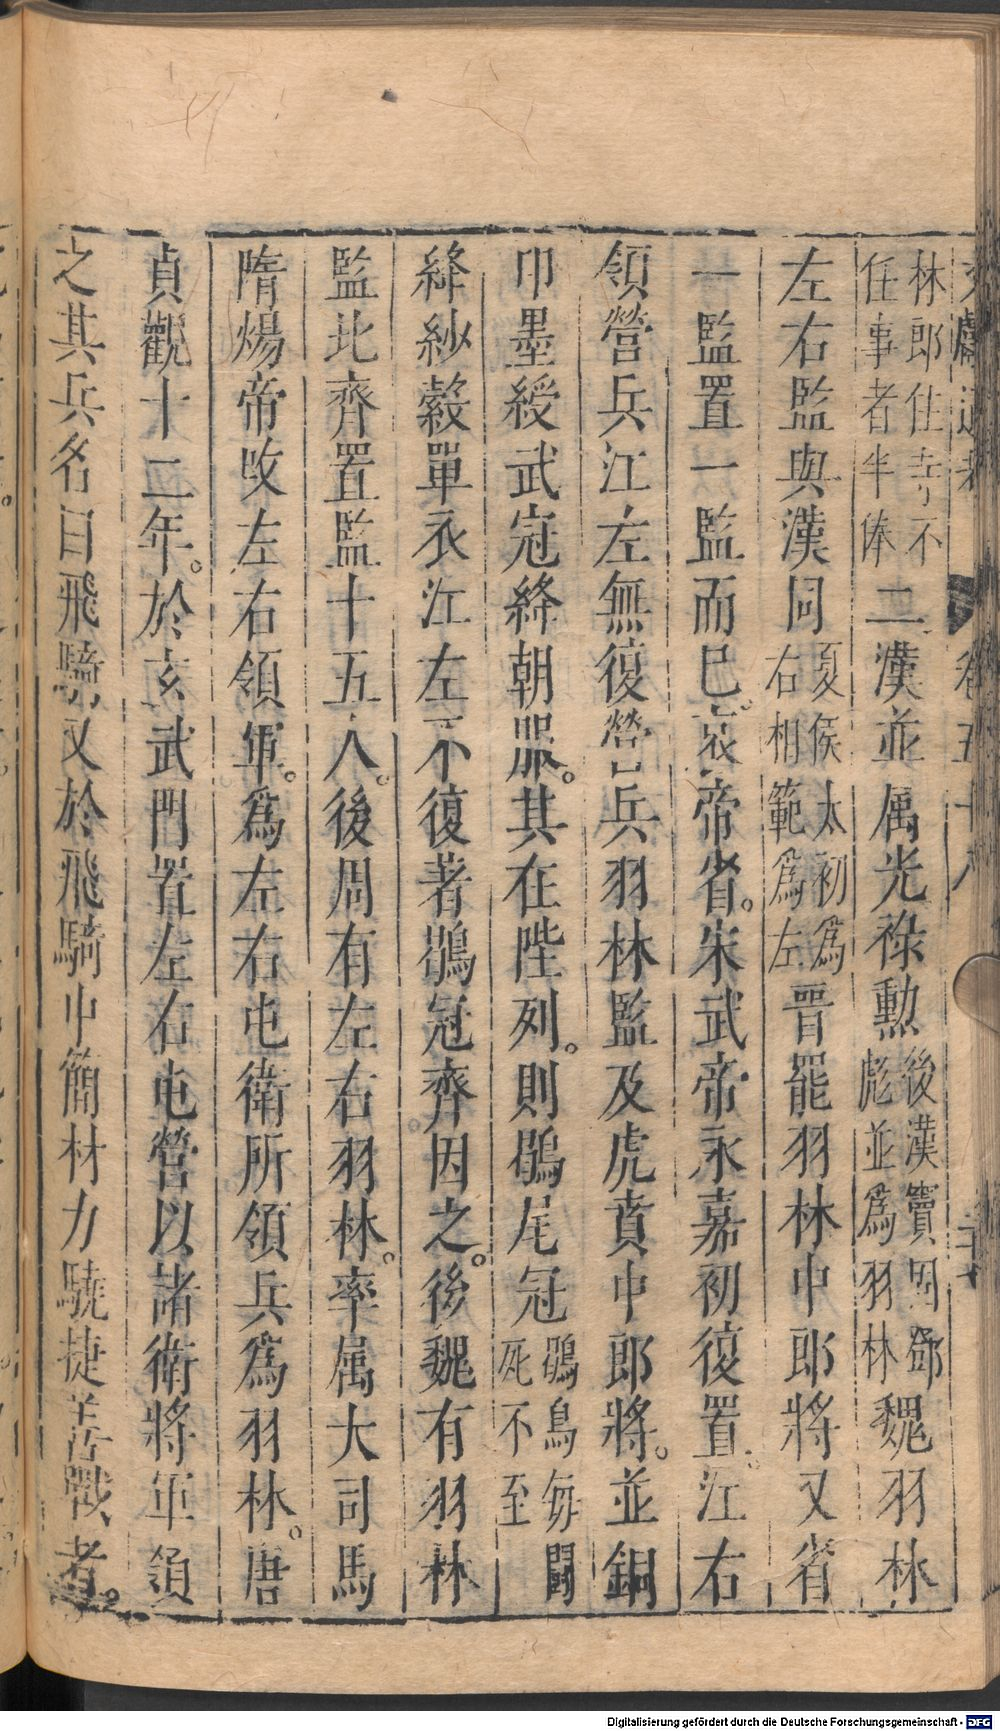 文獻通考 卷五十八 二十
林郎任寺不任事者半俸二漢並属光祿勲後漢竇固鄧彪並為羽林魏羽林
左右監與漢同夏侯太初為右相範為左晉罷羽林中郎將又省
一監置一監而已哀帝省。宋武帝永嘉初復置江右
領營兵江左無復營兵羽林監及虎賁中郎將。並銅
印墨綬武冠絳朝服。其在陛列。則鶡尾冠鶡鳥每闘死不至
絳紗縠單衣江左不復著鶡冠齊因之。後魏有羽林
監北齊置監十五人。後周有左右羽林。率属大司馬
隋煬帝攺左右領軍。為左右屯衛所領兵為羽林。唐
貞觀十二年。於玄武門置左右屯營以諸衛將軍領
之其兵名曰飛騎又於飛騎中簡材力驍捷善戰者。
Digitalisierung gefördert durch die Deutsche Forschungsgemeinschaft - DFG